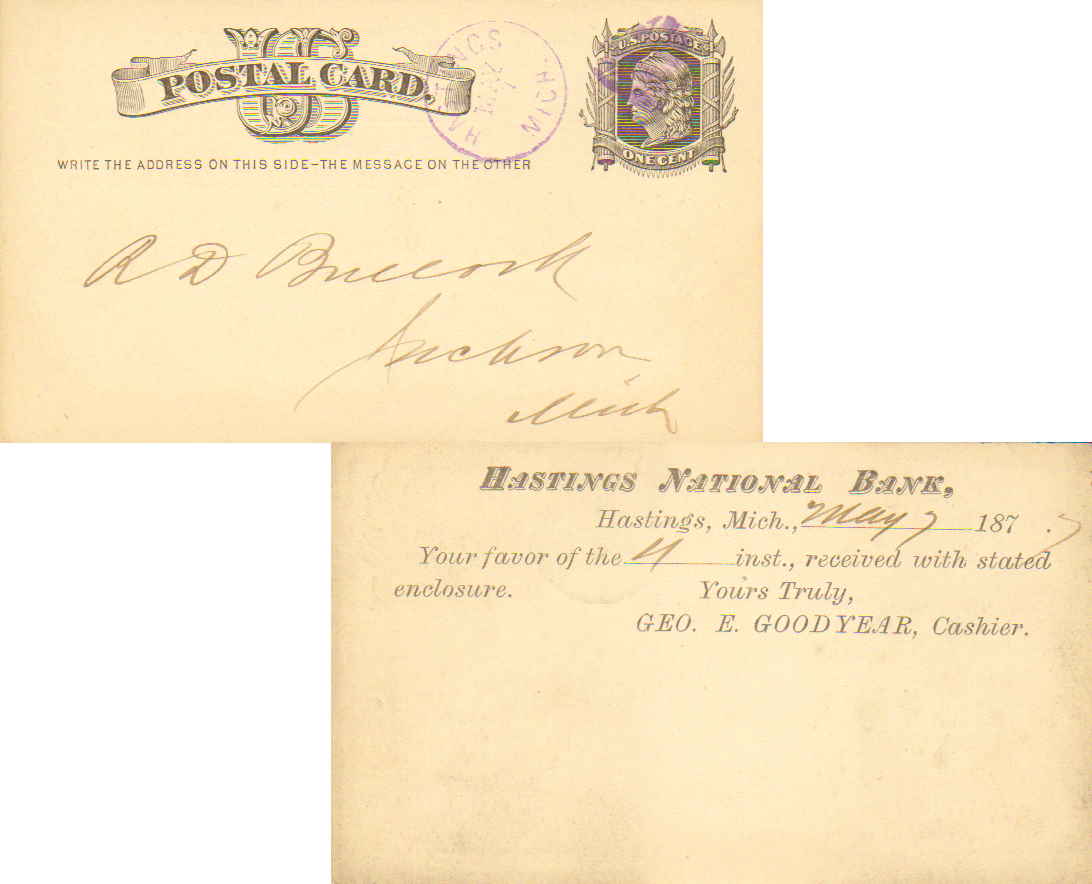 US
POSTAL CARD.
HASTINGS
MAY
7
MICH.
U.S. POSTAGE
ONE CENT
WRITE THE ADDRESS ON THIS SIDE—THE MESSAGE ON THE OTHER
R D Bullock
Jackson
Mich
HASTINGS NATIONAL BANK,
Hastings, Mich., May 7 187 . 7
Your favor of the 4 inst., received with stated
enclosure. Yours Truly,
GEO. E. GOODYEAR, Cashier.